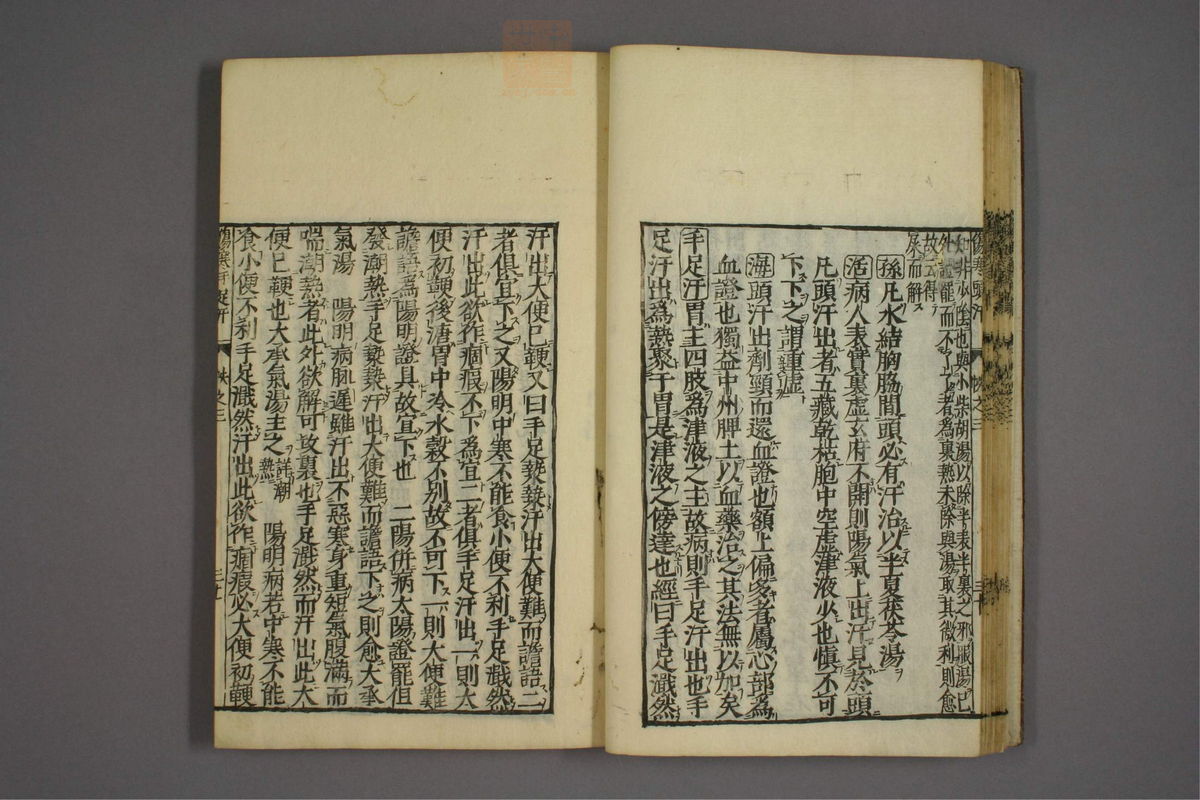 傷寒頭汗　卷之三　三十
知非少陰也與小柴胡湯以除半表半裏之邪服湯已
外證罷而不了了者為裏熱未除與湯取其微利則愈
故云得
屎而解
孫凡水結胸脇間頭必有汗治以半夏茯苓湯
活病人表實裏虛玄府不開則陽氣上出汗見於頭
凡頭汗出者五藏乾枯胞中空虛津液少也慎不可
下下之謂重虛
海頭汗出劑頸而還血證也額上偏多者屬心部為
血證也獨益中州脾土以血藥治之其法無以加矣
手足汗胃主四肢為津液之主故病則手足汗出也手
足汗出為熱聚于胃是津液之傍達也經曰手足濈然
汗出大便已鞕又曰手足漐漐汗出大便難而譫語二
者俱宜下之又陽明中寒不能食小便不利手足濈然
汗出此欲作痼瘕不下為宜二者俱手足汗出一則大
便初鞕後溏胃中冷水穀不別故不可下一則大便難
譫語為陽明證具故宜下也　二陽併病太陽證罷但
發潮熱手足漐漐汗出大便難而譫語下之則愈大承
氣湯　陽明病脉遲雖汗出不惡寒身重短氣腹滿而
喘潮熱者此外欲解可攻裏也手足濈然而汗出此大
便已鞕也大承氣湯主之詳潮熱　陽明病若中寒不能
食小便不利手足濈然汗出此欲作痼瘕必大便初鞕